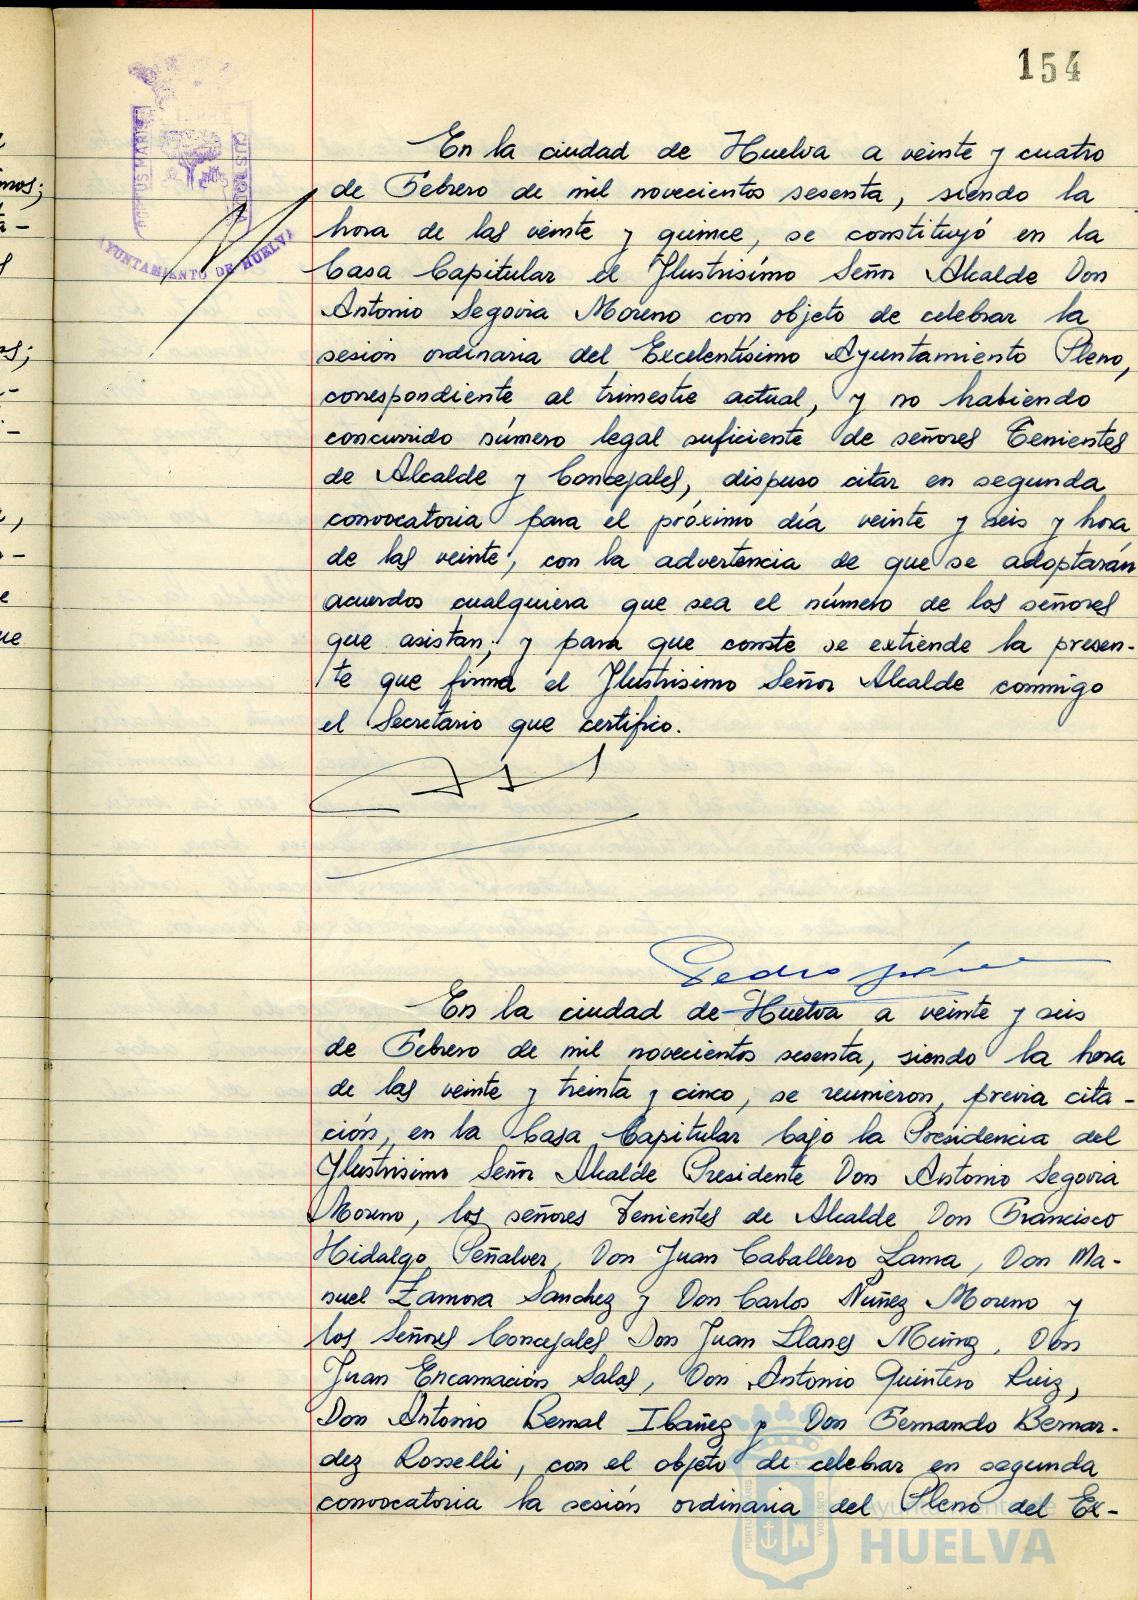 154
PORTUS MARIS
CUSTODIA
AYUNTAMIENTO DE HUELVA
En la ciudad de Huelva a veinte y cuatro
de Febrero de mil novecientos sesenta, siendo la
hora de las veinte y quince, se constituyó en la
Casa Capitular el Ilustrisimo Señor Alcalde Don
Antonio Segovia Moreno con objeto de celebrar la
sesión ordinaria del Excelentísimo Ayuntamiento Pleno,
correspondiente al trimestre actual, y no habiendo
concurrido número legal suficiente de señores Tenientes
de Alcalde y Concejales, dispuso citar en segunda
convocatoria para el próximo día veinte y seis y hora
de las veinte, con la advertencia de que se adoptarán
acuerdos cualquiera que sea el número de los señores
que asistan; y para que conste se extiende la presen-
te que firma el Ilustrisimo Señor Alcalde conmigo
el Secretario que certifico.
Pedro
En la ciudad de Huelva a veinte y seis
de Febrero de mil novecientos sesenta, siendo la hora
de las veinte y treinta y cinco, se reunieron, previa cita-
ción, en la Casa Capitular bajo la Presidencia del
Ilustrisimo Señor Alcalde Presidente Don Antonio Segovia
Moreno, los señores Tenientes de Alcalde Don Francisco
Hidalgo Peñalver, Don Juan Caballero Lama, Don Ma-
nuel Zamora Sanchez y Don Carlos Nuñez Moreno y
los Señores Concejales Don Juan Llanes Muñoz, Don
Juan Encarnación Salas, Don Antonio Quintero Ruiz,
Don Antonio Bernal Ibañez y Don Fernando Bermar-
dez Rosselli, con el objeto de celebrar en segunda
convocatoria la sesión ordinaria del Pleno del Ex-
Ayuntamiento de
HUELVA